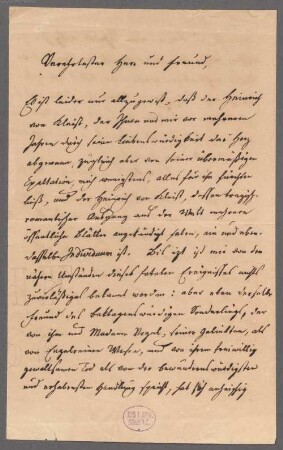 Verehrtester Herr und Freund,
Es ist leider nur allzugewiß, daß der Heinrich
von Kleist, der Ihnen und mir vor mehreren
Jahren durch seine Liebenswürdigkeit das Herz
abgewann, zugleich aber von seiner übermäßigen
Exaltation, mich wenigstens, alles für ihn fürchten
ließ, und der Heinrich von Kleist, dessen tragisch-
romantischer Ausgang aus der Welt mehrere
öffentliche Blätter angekündigt haben, ein und eben-
dasselbe Individuum ist. Bis itzt ist mir von den
nähern Umständen dieses fatalen Ereignisses nichts
zuverlässiges bekannt worden: aber eben derselbe
Freund des beklagenswürdigen Sonderlings, der
von ihm und Madame Vogel, seiner Geliebten, als
von Wesen, und von ihrem freiwillig
gewaltsamen Tod als von der bewundernswürdigsten
und erhabensten Handlung spricht, hat sich anheischig